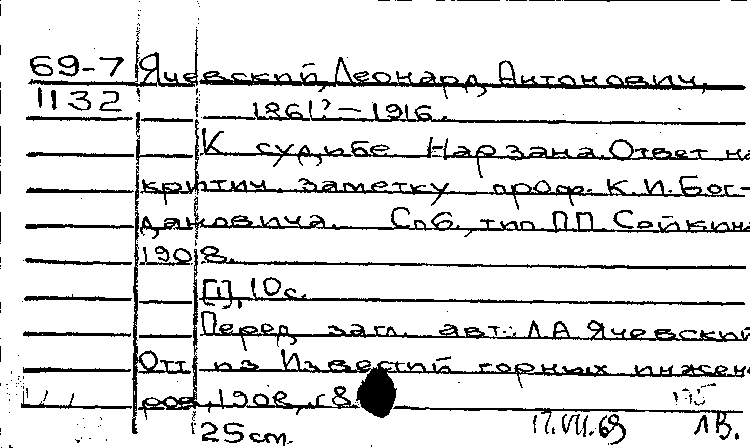 69-7 Ячевский, Леонард Антонович,
1132 1861?-1916.
К судьбе Нарзана. Ответ на
критич. заметку проф. К.И. Бог-
дановича. Спб., тип. П.П. Сойкина
1908.
[1], 10с.
Перед загл. авт.: Л.А. Ячевский
Отт. из Известий горных инжене
ров, 1908, г 8.
25 cm.
17.VII.69 ЛВ.